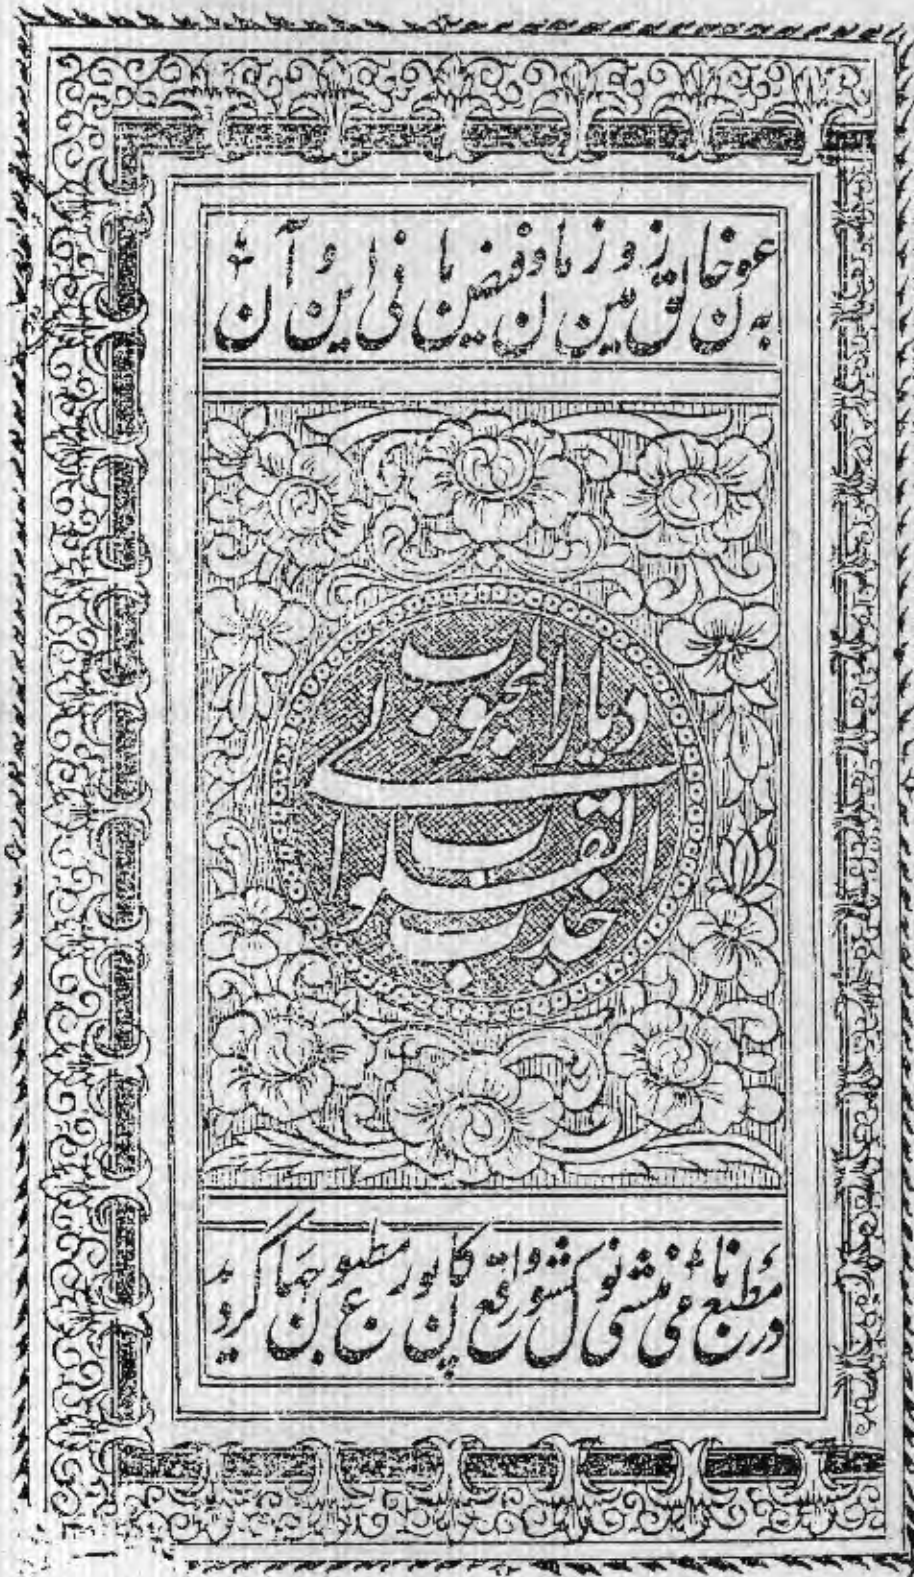 بعون خالق زمین و زمان و فیض بانی این و آن
جذب القلوب
الی
دیار المحبوب
در مطبع نامی منشی نولکشور واقع کانپور مطبوع جہان گردید